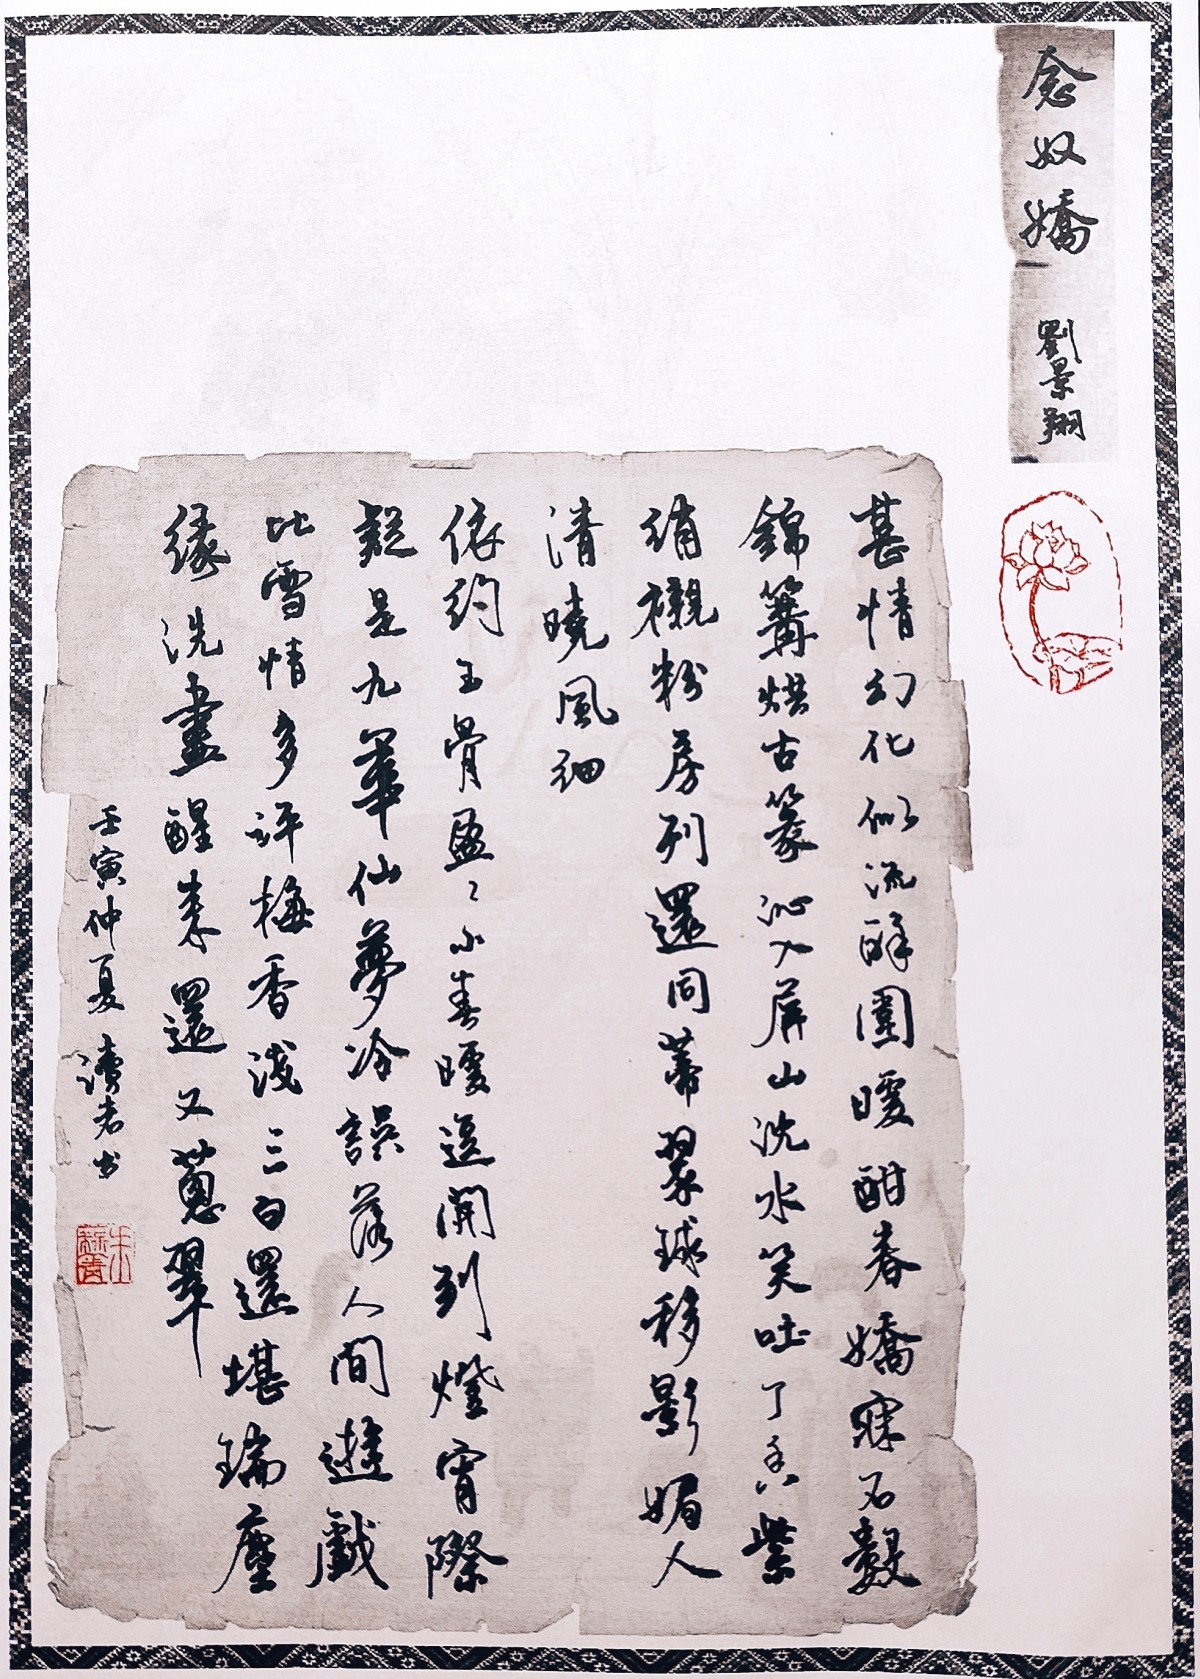 念奴嬌 劉景翔
甚情幻化似流酥圍暖酣春嬌寐不數
錦篝烘古篆沁入屏山沈水笑吐丁香紫
綃襯粉房列還同蒂翠球移影媚人
清曉風細
依約玉骨盈〻小春暖逗開到燈宵際
疑是九華仙夢冷誤落人間遊戲
比雪情多評梅香淺三白還堪瑞塵
緣洗盡醒來還又蔥翠
壬寅仲夏 书